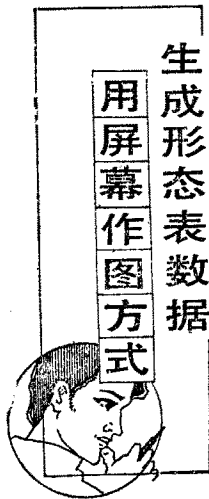 用屏幕作图方式
生成形态表数据